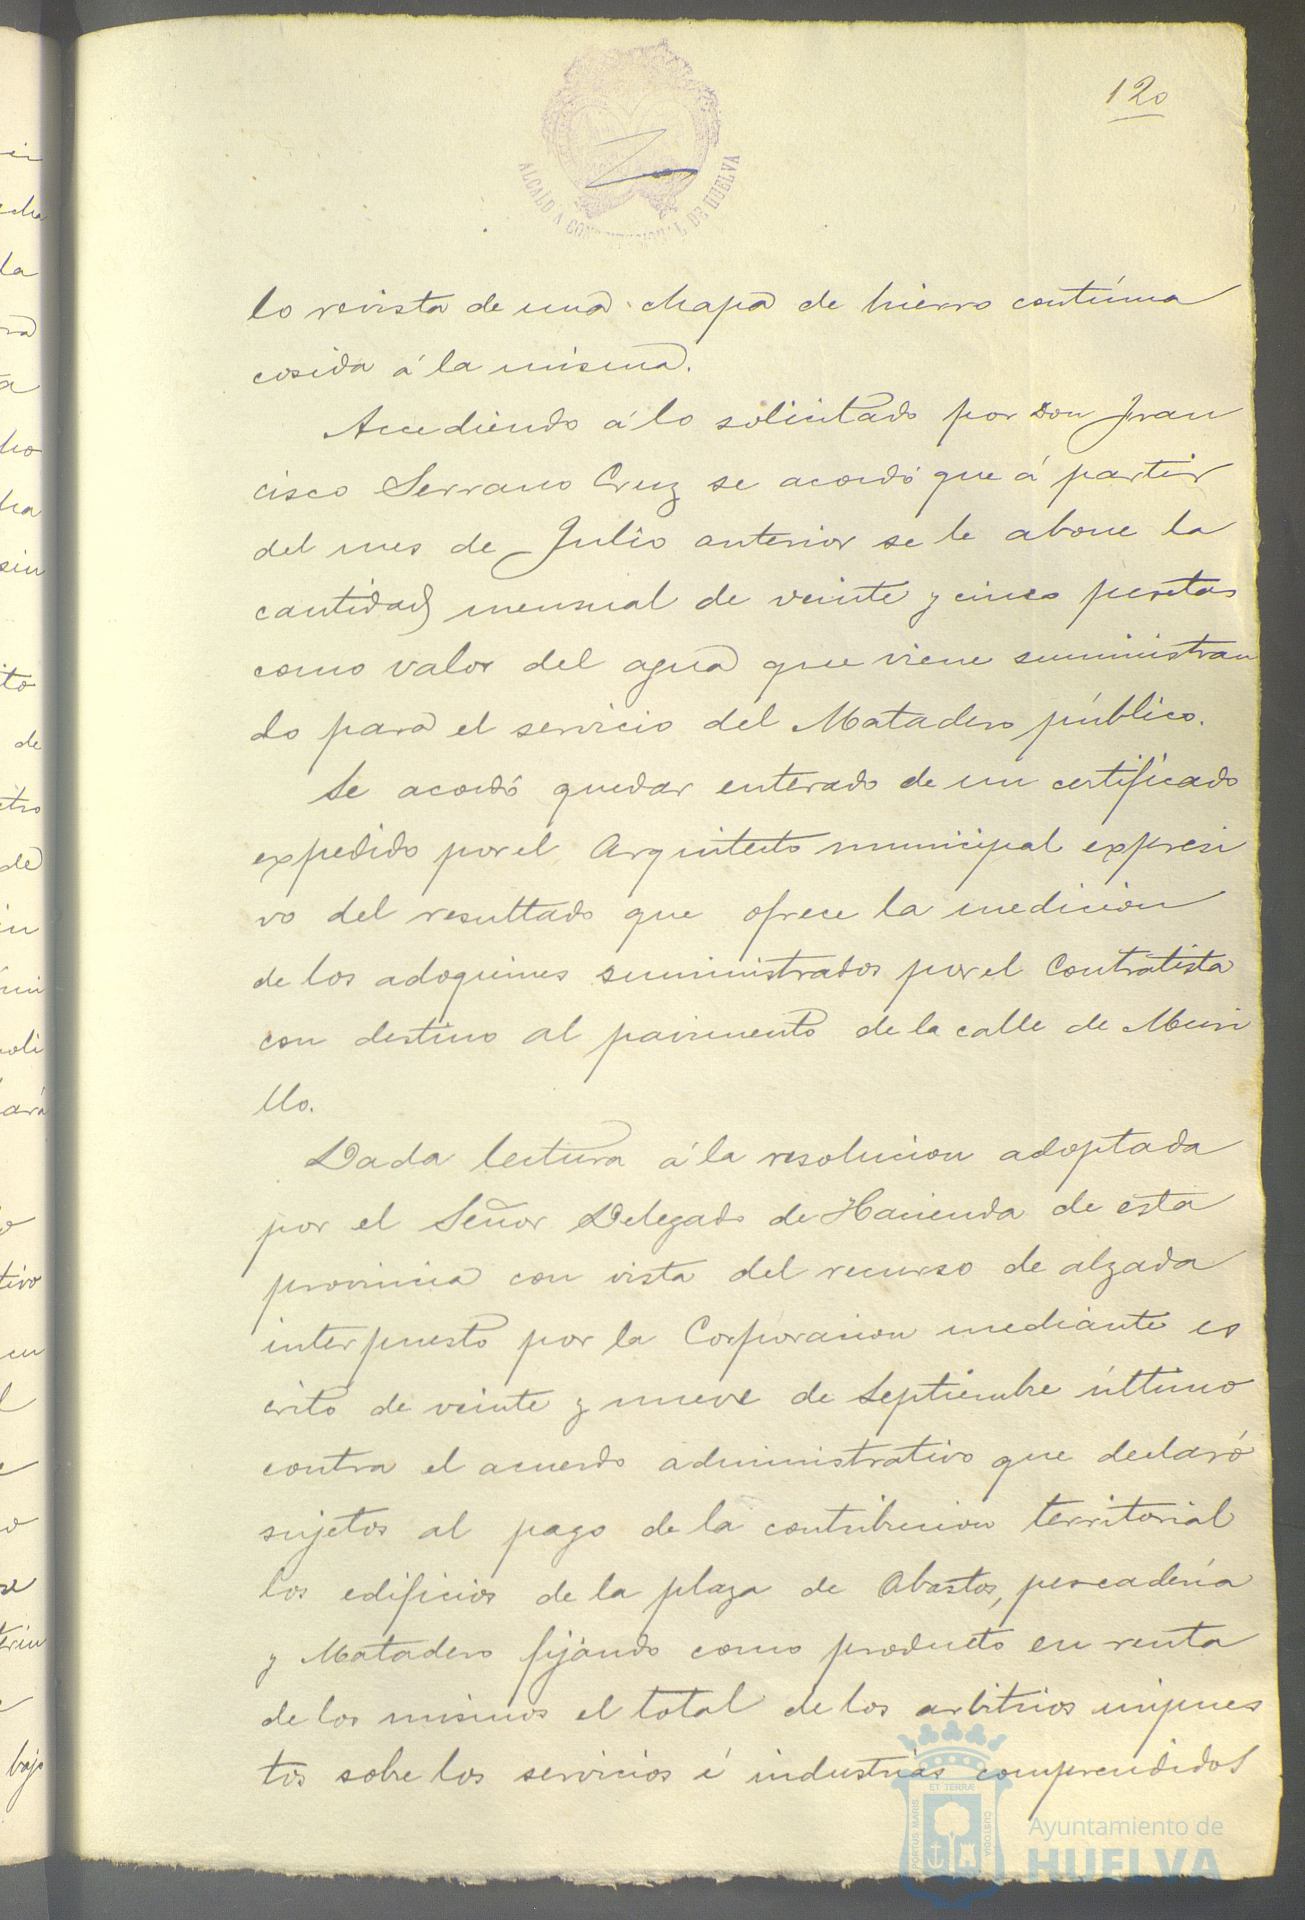 120
ALCALDÍA CONSTITUCIONAL DE HUELVA
lo revista de una chapa de hierro contínua
cosida á la misma.
Accediendo á lo solicitado por Don Fran
cisco Serrano Cruz se acordó que á partir
del mes de Julio anterior se le abone la
cantidad mensual de veinte y cinco pesetas
como valor del agua que viene suministran
do para el servicio del Matadero público.
Se acordó quedar enterado de un certificado
expedido por el Arquitecto municipal expresi
vo del resultado que ofrece la medicion
de los adoquines suministrados por el Contratista
con destino al pavimento de la calle de Muri
llo.
Dada lectura á la resolucion adoptada
por el Señor Delegado de Hacienda de esta
provincia con vista del recurso de alzada
interpuesto por la Corporacion mediante es
crito de veinte y nueve de Septiembre último
contra el acuerdo administrativo que declaró
sujetos al pago de la contribucion territorial
los edificios de la plaza de Abastos, pescadería
y Matadero fijando como producto en renta
de los mismos el total de los arbitrios impues
tos sobre los servicios é industrias comprendidos
PORTUS MARIS ET TERRÆ CUSTODIA
Ayuntamiento de
HUELVA